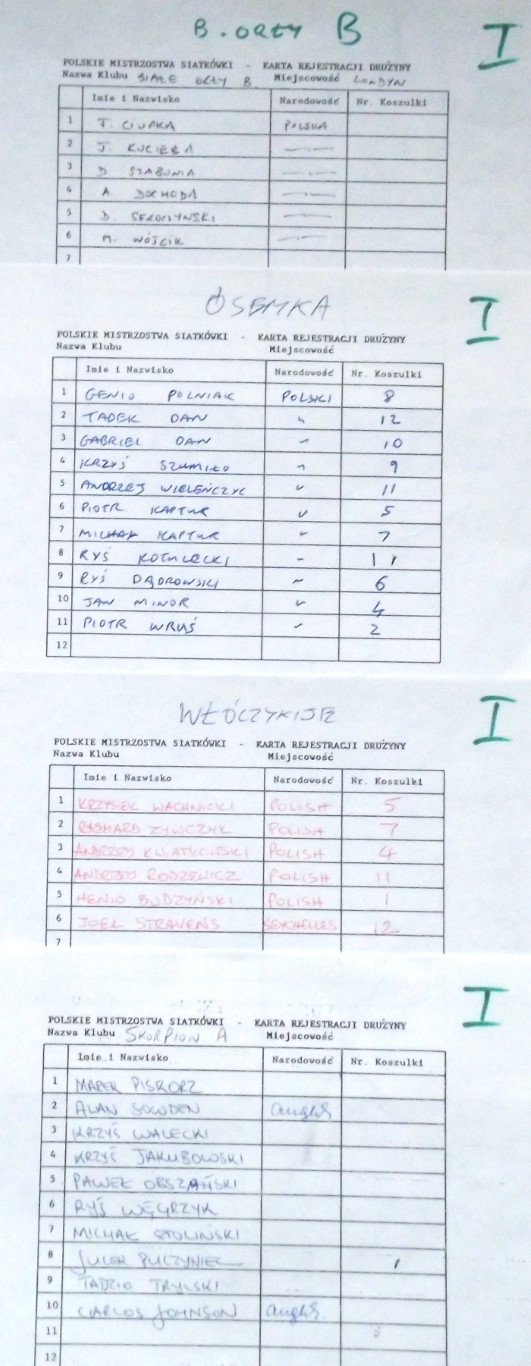 B. ORŁY B I
POLSKIE MISTRZOSTWA SIATKÓWKI - KARTA REJESTRACJI DRUŻYNY
Nazwa Klubu BIAŁE ORŁY B Miejscowość LONDYN
Imie i Nazwisko Narodowość Nr. Koszulki
1 T. CIUPKA POLSKA
2 J. KUCIERA —"—
3 D. SZABUNIA —"—
4 A DOCHODA —"—
5 D. SEROCZYNSKI —"—
6 M. WÓJCIK —"—
7
ÓSEMKA I
POLSKIE MISTRZOSTWA SIATKÓWKI - KARTA REJESTRACJI DRUŻYNY
Nazwa Klubu Miejscowość
Imie i Nazwisko Narodowość Nr. Koszulki
1 GENIO POLNIAK POLSKI 8
2 TADEK DAN " 12
3 GABRIEL DAN " 10
4 KRZYŚ SZUMIŁO " 9
5 ANDRZEJ WIELEŃCZYC " 11
6 PIOTR KAPTUR " 5
7 MICHAŁ KAPTUR " 7
8 RYŚ KOTULECKI " 11
9 RYŚ DĄBROWSKI " 6
10 JAN MINOR " 4
11 PIOTR WRUŚ " 2
12
WŁÓCZYKIJE I
POLSKIE MISTRZOSTWA SIATKÓWKI - KARTA REJESTRACJI DRUŻYNY
Nazwa Klubu Miejscowość
Imie i Nazwisko Narodowość Nr. Koszulki
1 KRZYSIEK WACHNICKI POLISH 5
2 RYSHARD ZYWCZYK POLISH 7
3 ANDRZEJ KWIATKOWSKI POLISH 4
4 ANDRZEJ RODZEWICZ POLISH 11
5 HENIO BUDZYŃSKI POLISH 1
6 JOEL STRAVENS SEYCHELLES 12
7
I
POLSKIE MISTRZOSTWA SIATKÓWKI - KARTA REJESTRACJI DRUŻYNY
Nazwa Klubu SKORPION A Miejscowość
Imie i Nazwisko Narodowość Nr. Koszulki
1 MAREK PISKORZ
2 ALAN SOWDEN
3 KRZYŚ WALECKI
4 KRZYŚ JAKUBOWSKI
5 PAWEŁ OBSZAŃSKI
6 RYŚ WĘGRZYK
7 MICHAŁ STOLIŃSKI
8 JULEK PUCZYNIEC
9 TADZIO TRYLSKI
10 CARLOS JOHNSON
11
12